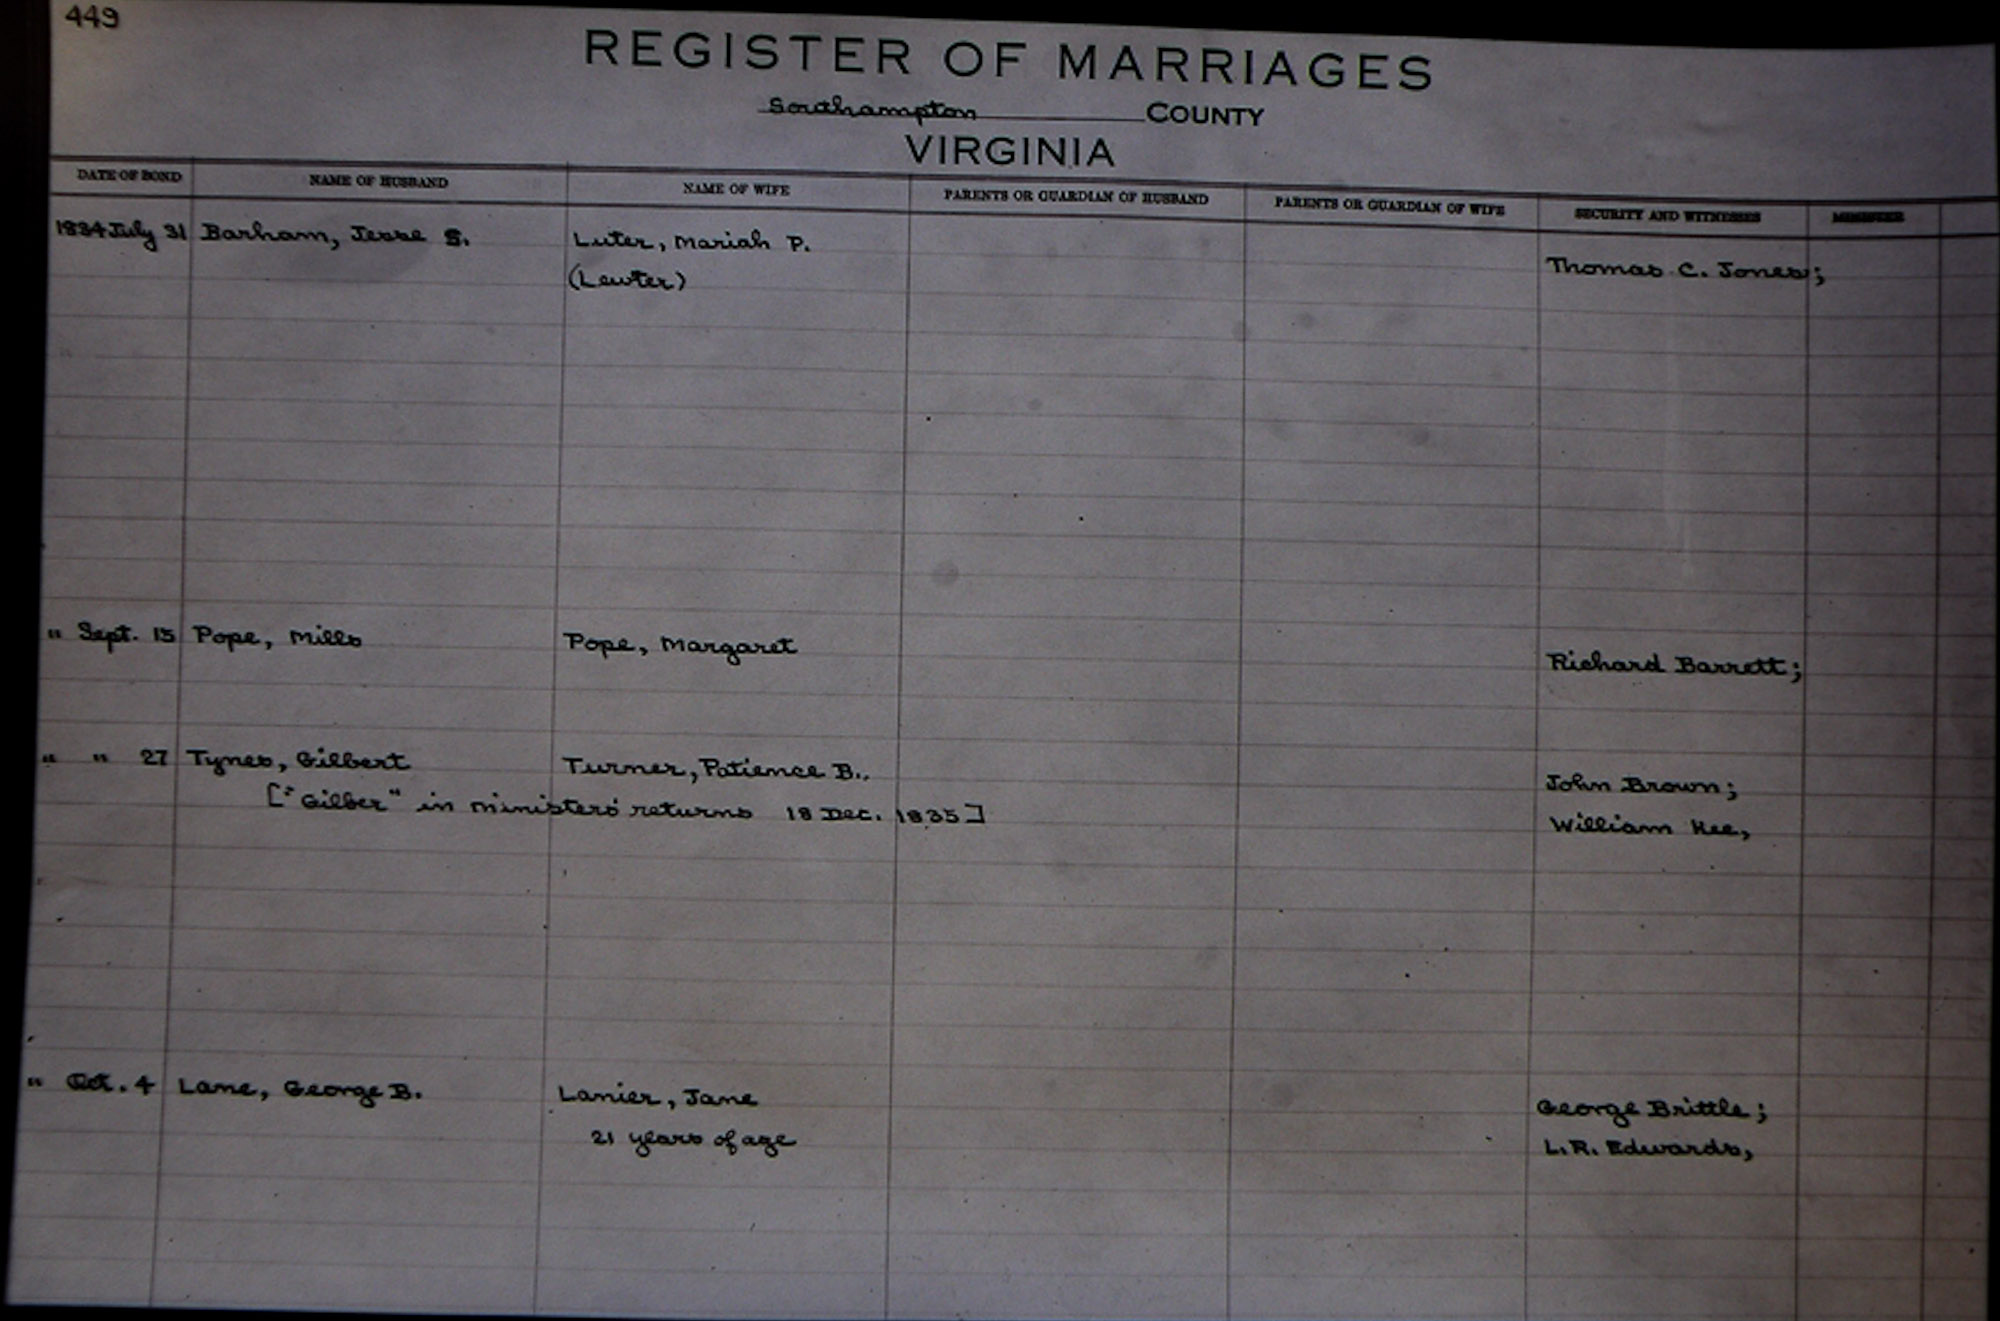 449
REGISTER OF MARRIAGES
Southampton COUNTY
VIRGINIA
DATE OF BOND NAME OF HUSBAND NAME OF WIFE PARENTS OR GUARDIAN OF HUSBAND PARENTS OR GUARDIAN OF WIFE SECURITY AND WITNESSES MINISTER
1834 July 31 Barham, Jesse S. Luter, Mariah P. Thomas C. Jones;
(Lewter)
" Sept. 15 Pope, Mills Pope, Margaret Richard Barrett;
" " 27 Tynes, Gilbert Turner, Patience B., John Brown;
["Gilber" in ministers' returns 18 Dec. 1835] William Kee,
" Oct. 4 Lane, George B. Lanier, Jane George Brittle;
21 years of age L.R. Edwards,